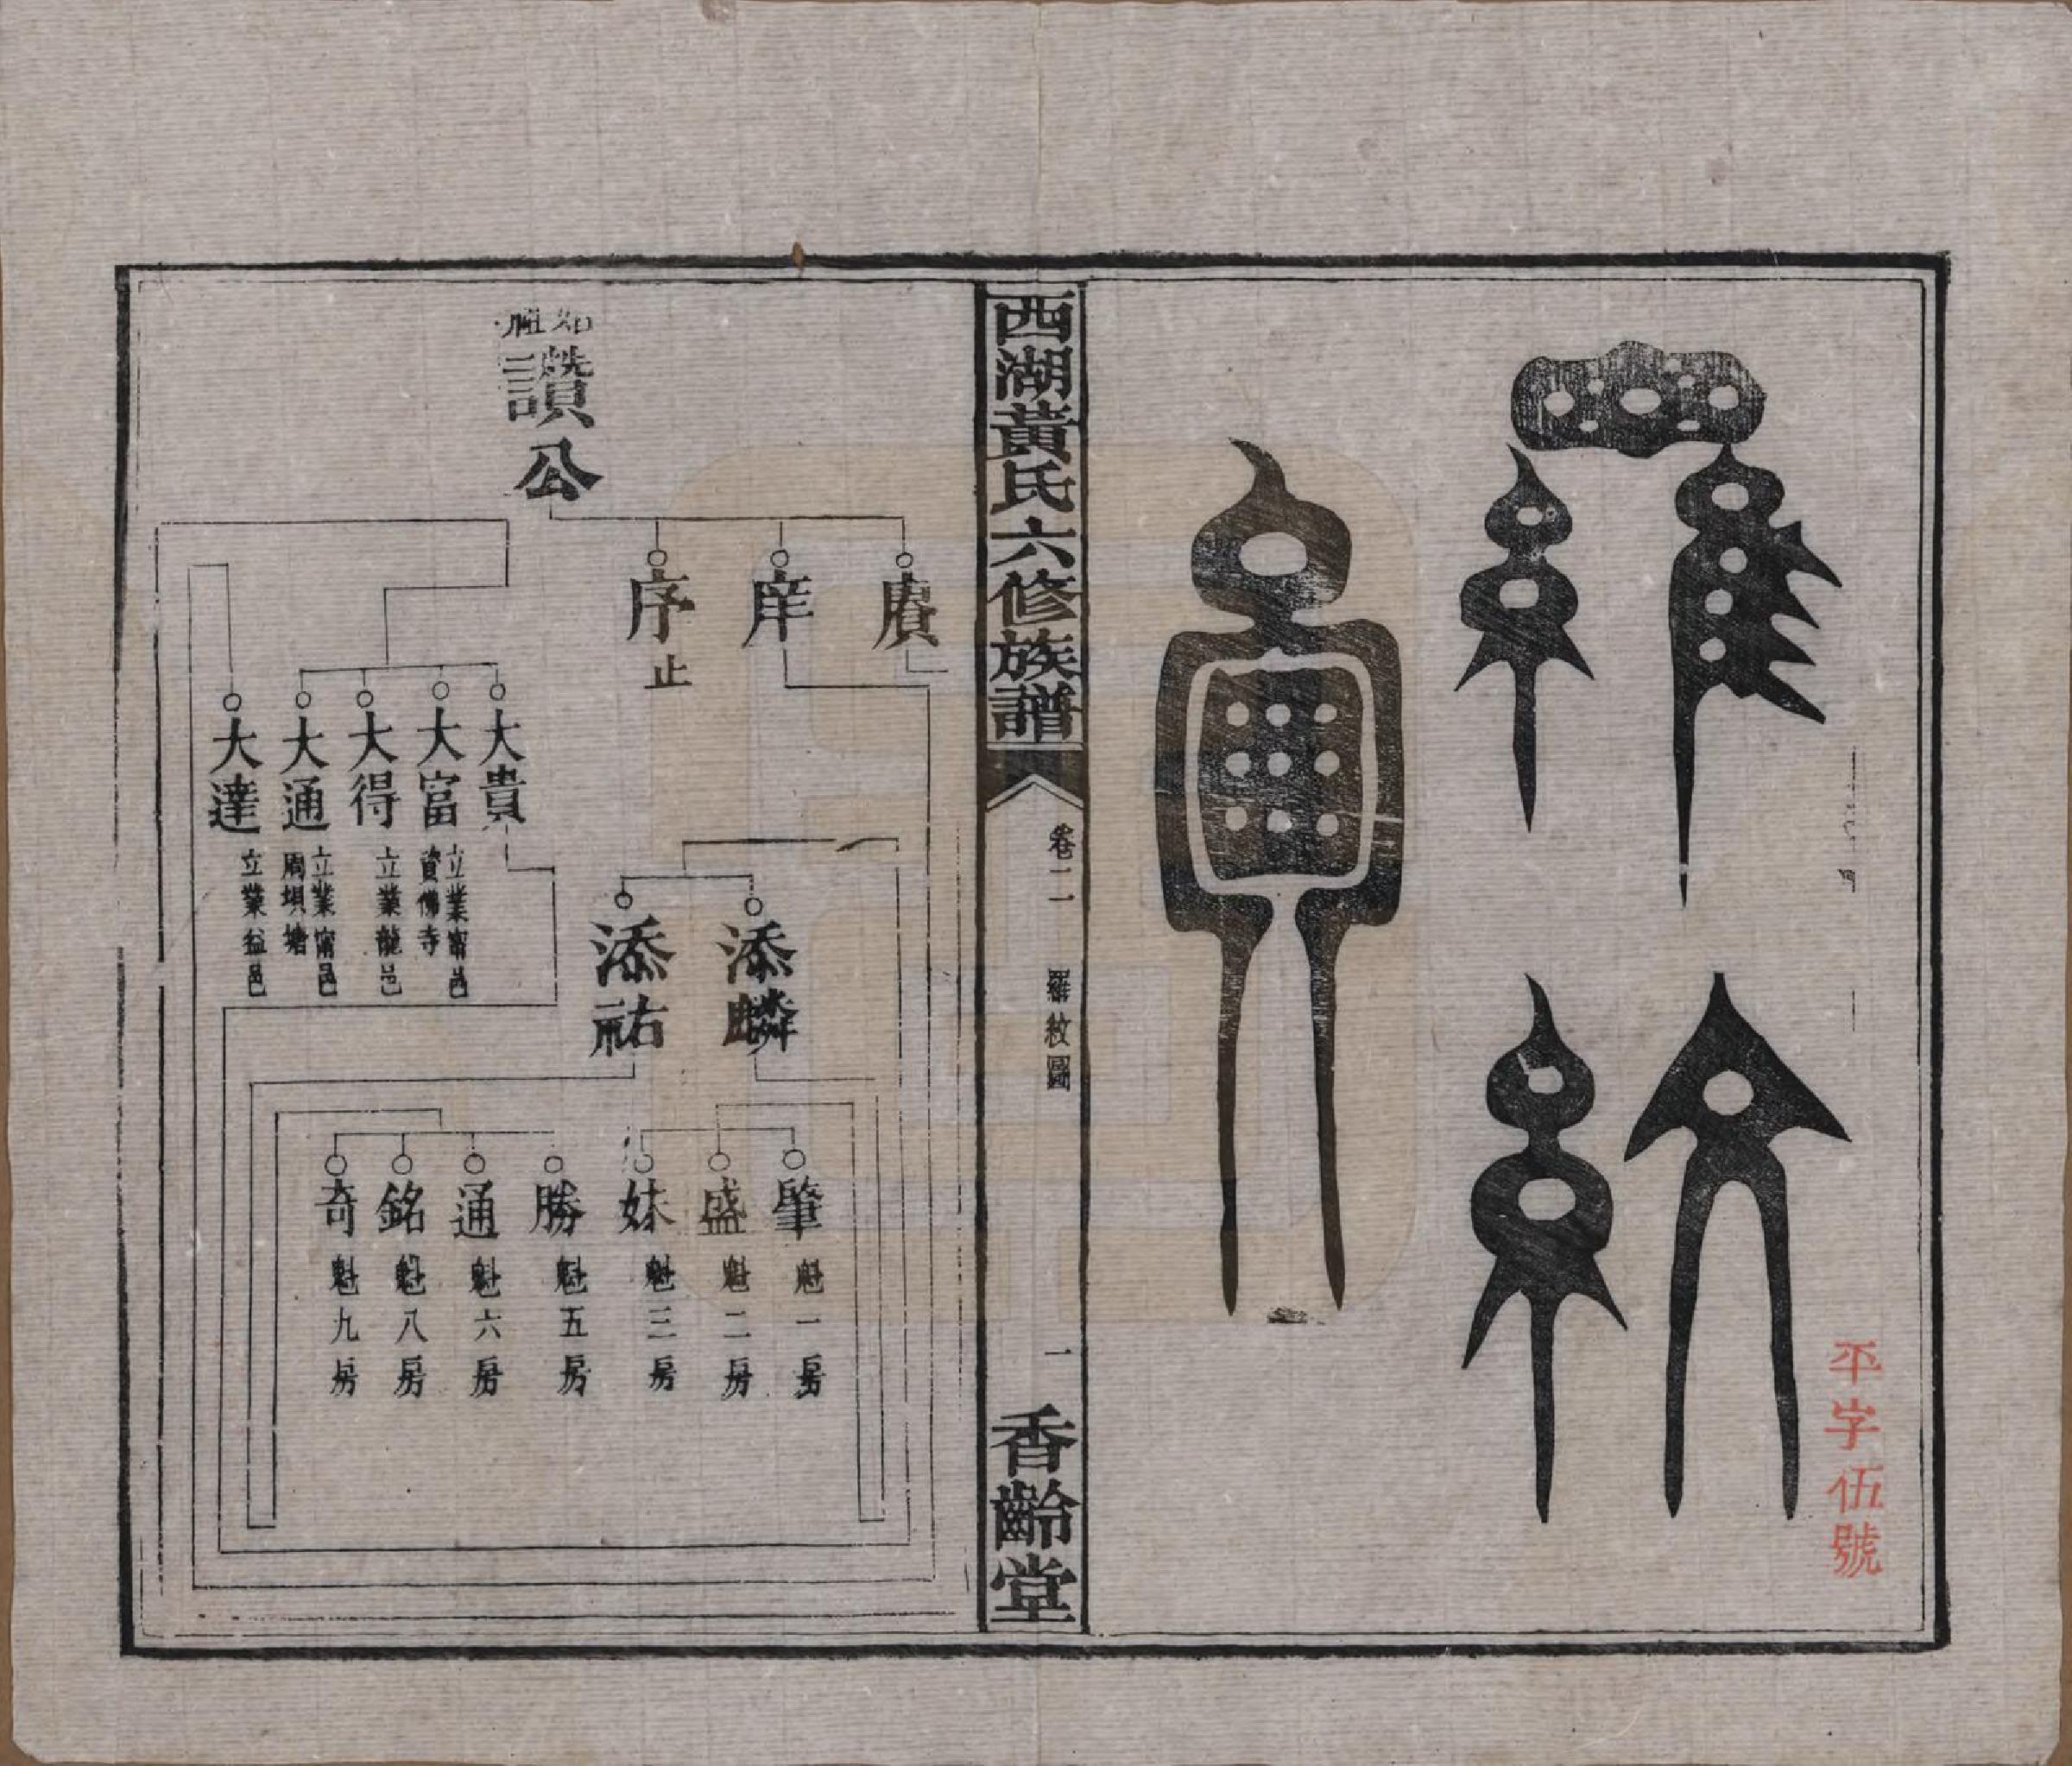 羅紋圖
平字伍號
西湖黃氏六修族譜
卷二
羅紋圖
一
香齡堂
始祖
讚公
賡
庠
序
止
添麟
添祐
肇
魁一房
盛
魁二房
妹
魁三房
勝
魁五房
通
魁六房
銘
魁八房
奇
魁九房
大貴
大富
立業甯邑
資佛寺
大得
立業龍邑
大通
立業甯邑
周垻塘
大達
立業益邑